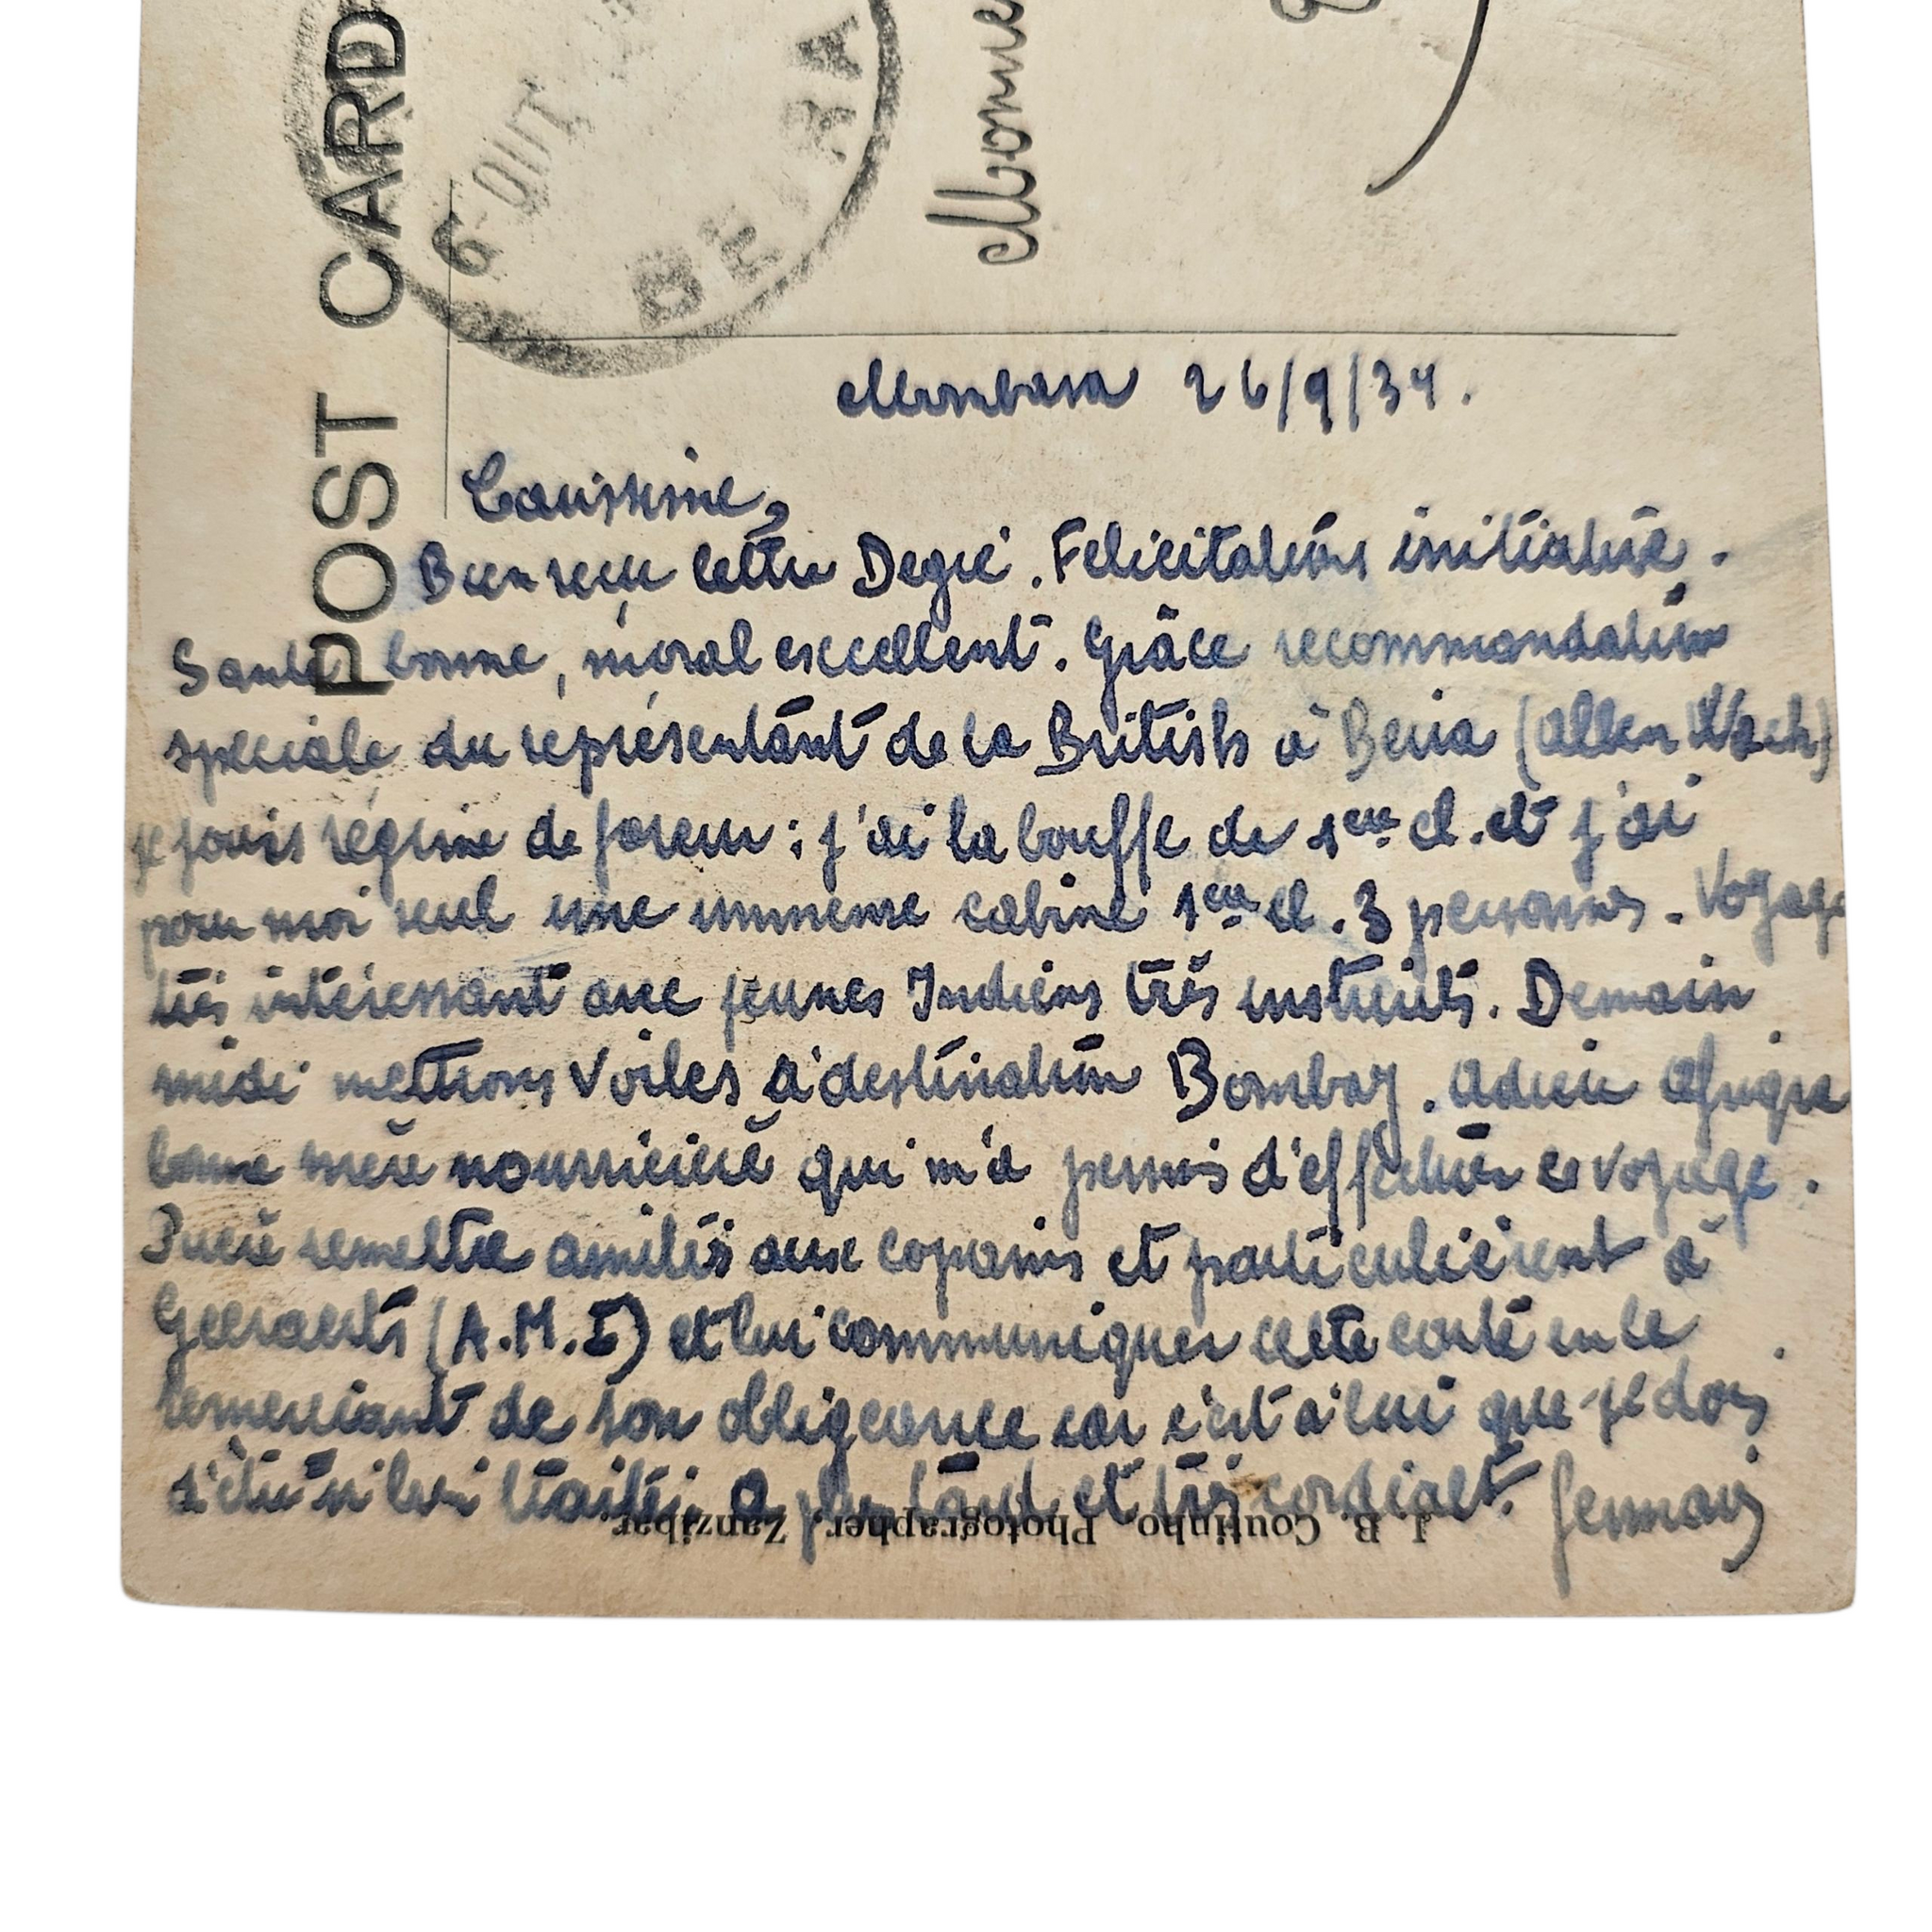 POST CARD
6 OUT
BEIRA
Mombasa 26/9/34.
Carissime,
Bien reçu lettre Degré. Felicitations initiative.
Santé bonne, moral excellent. Grâce recommandation
spéciale du représentant de la British à Beira (Allen
je jouis régime de faveur : j'ai la bouffe de 1ère cl. et j'ai
pour moi seul une immense cabine 1ère cl. 3 personnes. Voyage
très intéressant avec jeunes Indiens très instruits. Demain
midi mettrons voiles à destination Bombay. Adieu Afrique
bonne mère nourricière qui m'a permis d'effectuer ce voyage.
Prière remettre amitiés aux copains et particulièrent à
Geeraerts (A.M.I) et lui communiquer cette carte en le
remerciant de son obligeance car c'est à lui que je dois
d'être si bien traité. A plus tard et très cordialt. Germain
J. B. Coutinho, Photographer, Zanzibar.